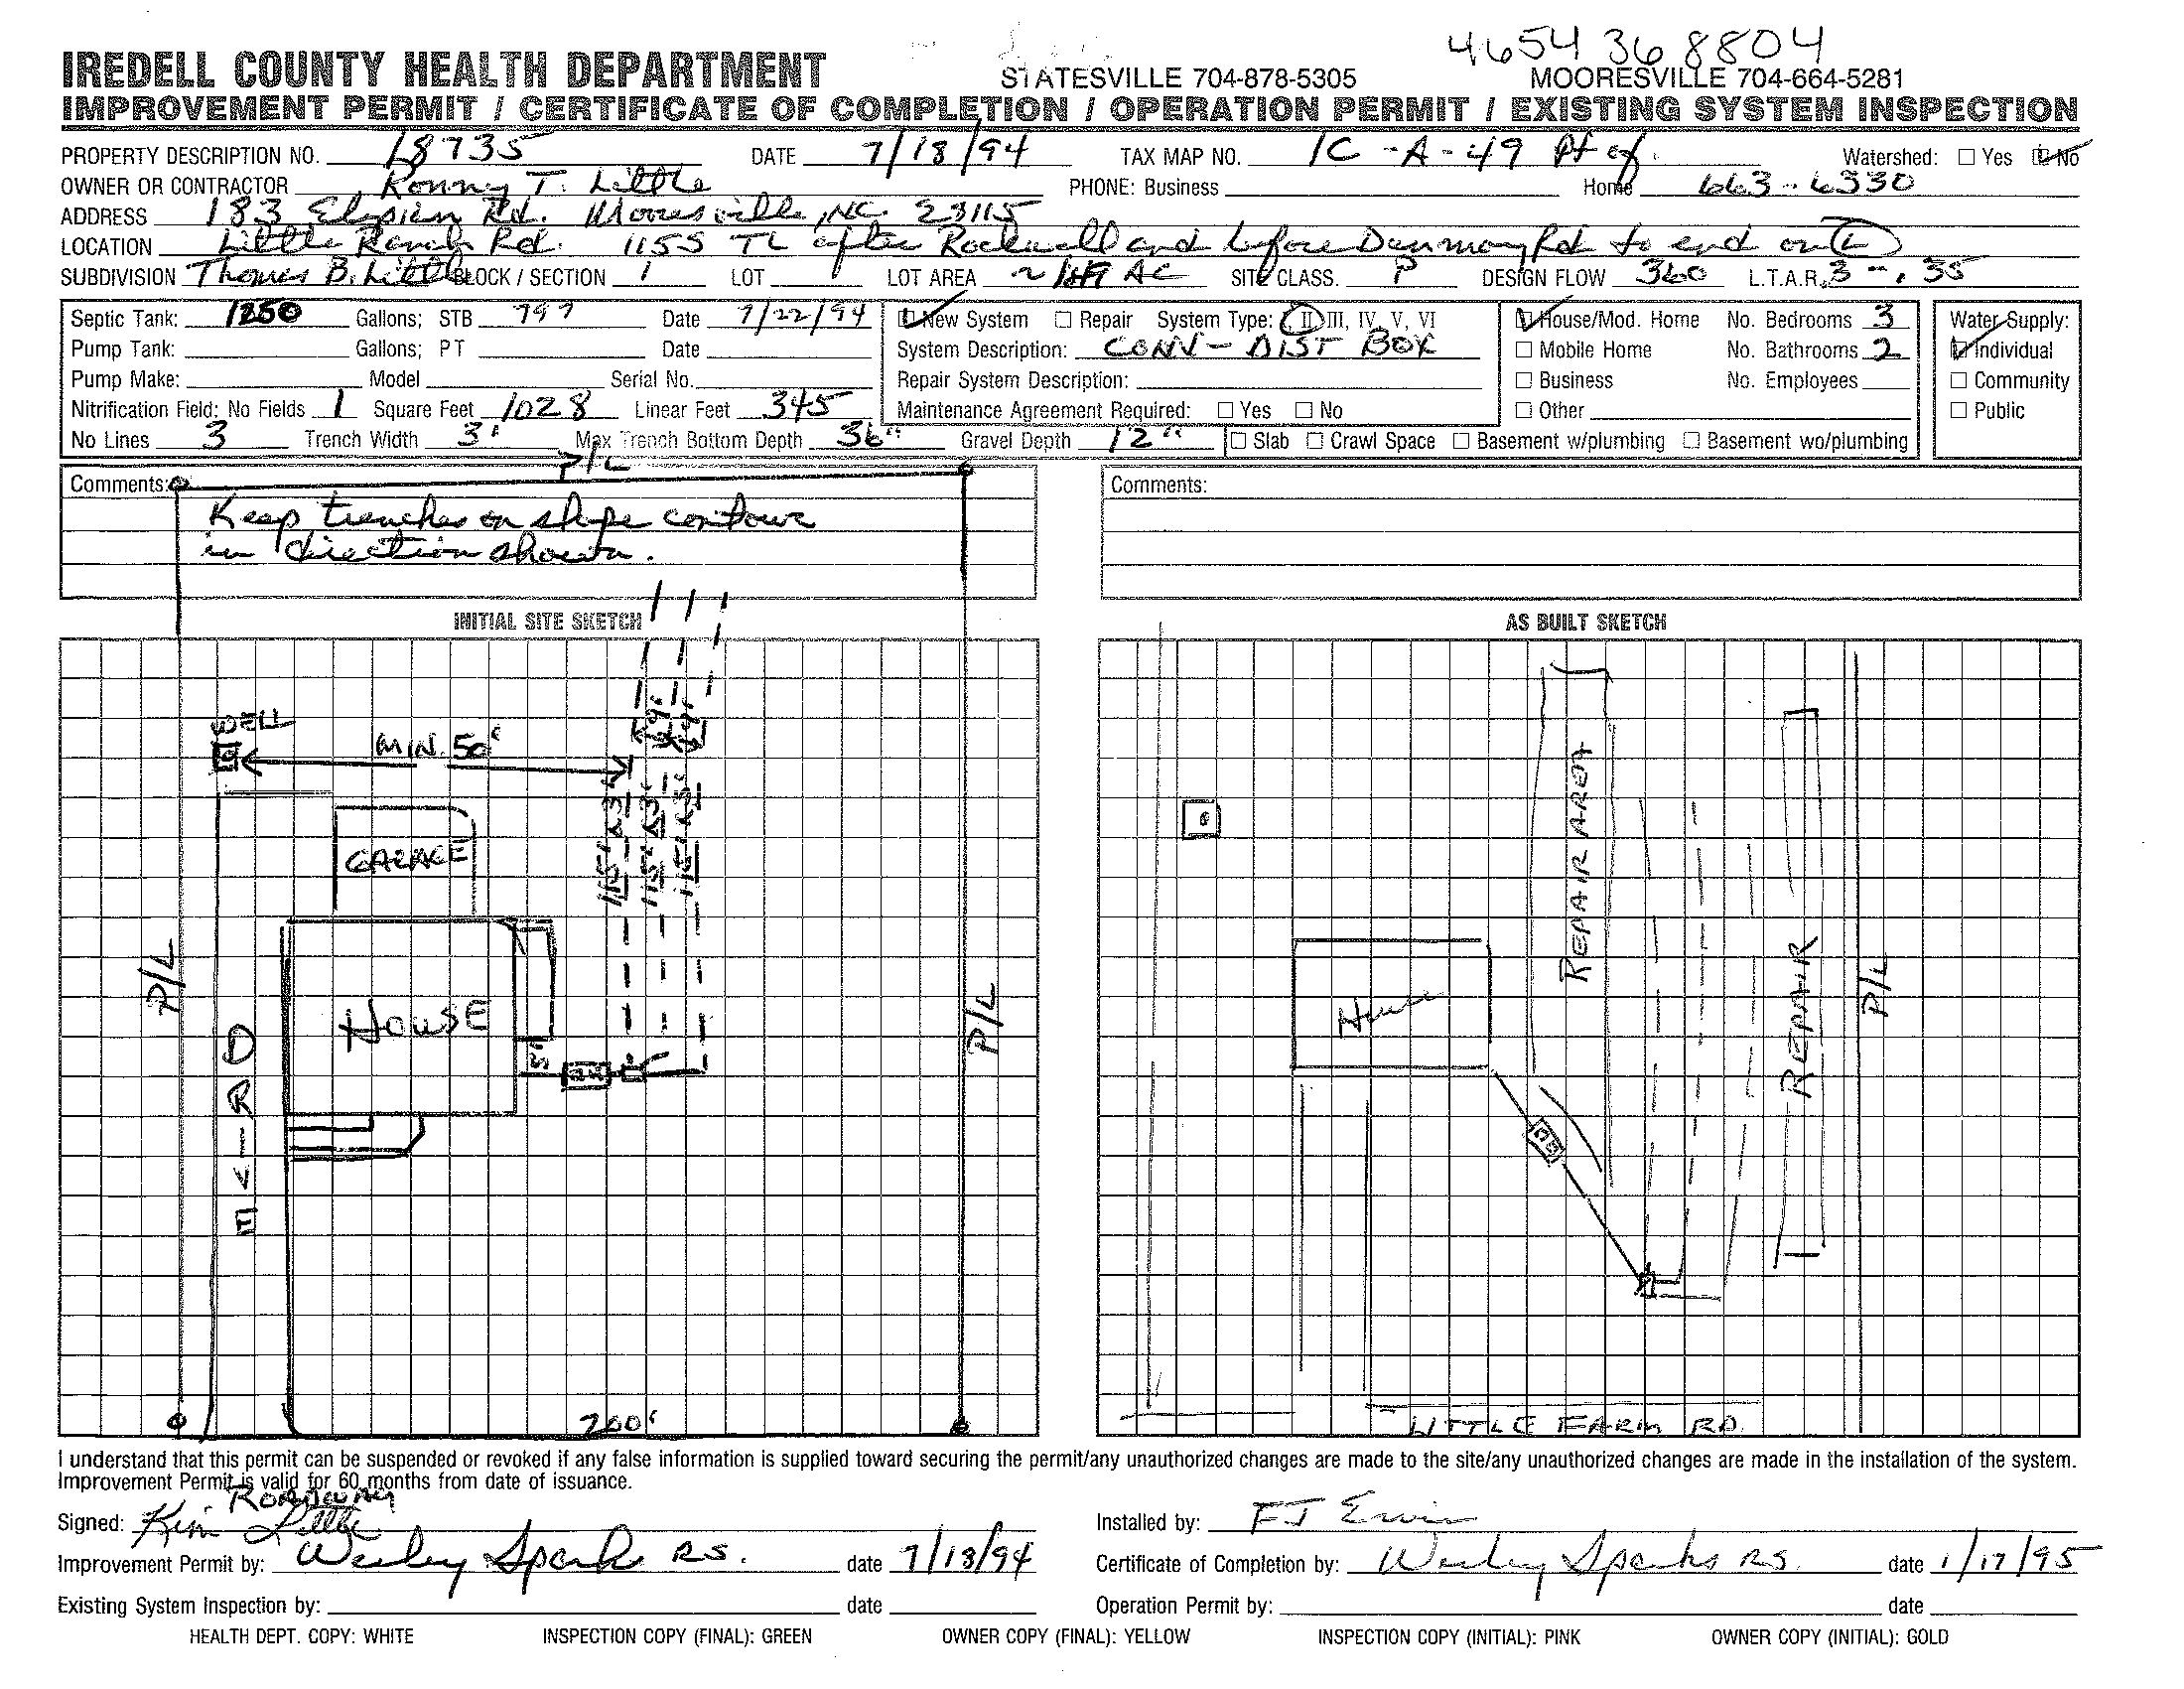 4654 36 8804
IREDELL COUNTY HEALTH DEPARTMENT STATESVILLE 704-878-5305 MOORESVILLE 704-664-5281
IMPROVEMENT PERMIT / CERTIFICATE OF COMPLETION / OPERATION PERMIT / EXISTING SYSTEM INSPECTION
PROPERTY DESCRIPTION NO. 18735 DATE 7/18/94 TAX MAP NO. 1C-A-49 Pt of. Watershed: ☐ Yes ☑ No
OWNER OR CONTRACTOR Ronny T. Little PHONE: Business Home 663-6330
ADDRESS 183 Elysian Rd. Mooresville, NC. 23115
LOCATION Little Ranch Rd. 115S TL after Rockwell and before Dunmony Rd to end on L
SUBDIVISION Thomas B. Little BLOCK / SECTION 1 LOT 1 LOT AREA AC SITE CLASS. P DESIGN FLOW 360 L.T.A.R. .3 - .35
Septic Tank: 1250 Gallons; STB 797 Date 7/22/94 ☑ New System ☐ Repair System Type: I, II, III, IV, V, VI ☑ House/Mod. Home No. Bedrooms 3 Water Supply:
Pump Tank: Gallons; PT Date System Description: CONV - DIST BOX ☐ Mobile Home No. Bathrooms 2 ☑ Individual
Pump Make: Model Serial No. Repair System Description: ☐ Business No. Employees ☐ Community
Nitrification Field: No Fields 1 Square Feet 1028 Linear Feet 345 Maintenance Agreement Required: ☐ Yes ☐ No ☐ Other ☐ Public
No Lines 3 Trench Width 3' Max Trench Bottom Depth 36" Gravel Depth 12" ☐ Slab ☐ Crawl Space ☐ Basement w/plumbing ☐ Basement wo/plumbing
P/L
Comments: Comments:
Keep trenches on slope contour
in direction shown.
INITIAL SITE SKETCH AS BUILT SKETCH
WELL
MIN. 50'
9' 9'
115' x 3' 115' x 3' 115' x 3'
GARAGE
HOUSE
P/L
P/L
D R
5'
200'
REPAIR AREA
House
REPAIR
P/L
LITTLE FARM RD.
I understand that this permit can be suspended or revoked if any false information is supplied toward securing the permit/any unauthorized changes are made to the site/any unauthorized changes are made in the installation of the system.
Improvement Permit is valid for 60 months from date of issuance.
Signed: Kim Little Installed by: FJ Ervin
Improvement Permit by: Wesley Sparks RS. date 7/18/94 Certificate of Completion by: Wesley Sparks RS. date 1/17/95
Existing System Inspection by: date Operation Permit by: date
HEALTH DEPT. COPY: WHITE INSPECTION COPY (FINAL): GREEN OWNER COPY (FINAL): YELLOW INSPECTION COPY (INITIAL): PINK OWNER COPY (INITIAL): GOLD